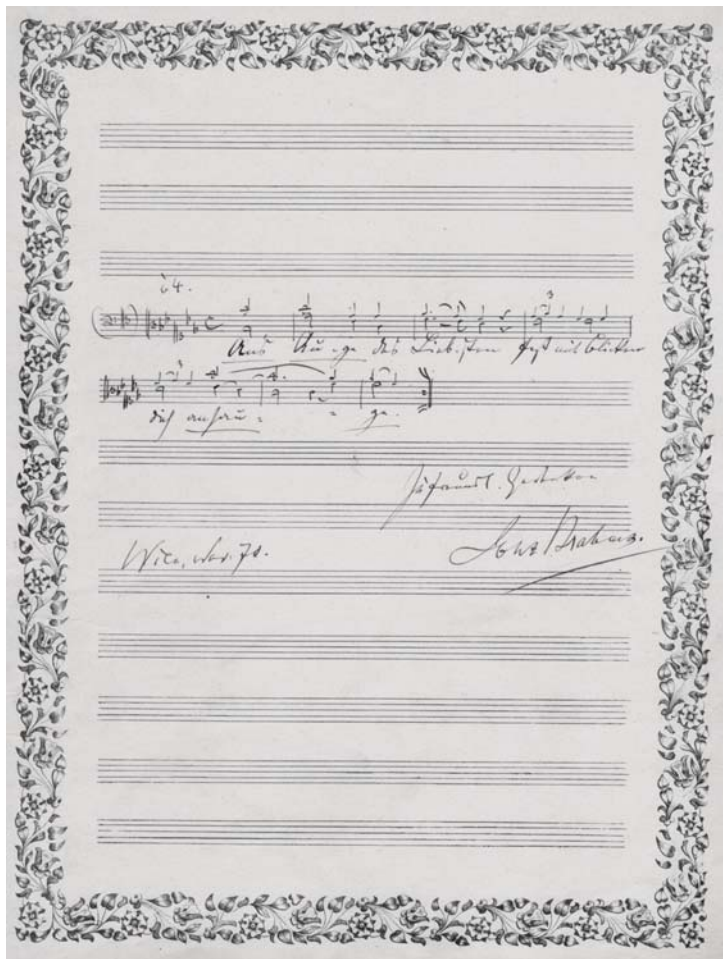 à 4.
Ans Au - ge des Lieb - sten fest mit Blicken
dich ansau - - ge.
Zu freundl. Gedenken
Johs Brahms.
Wien, Nov.